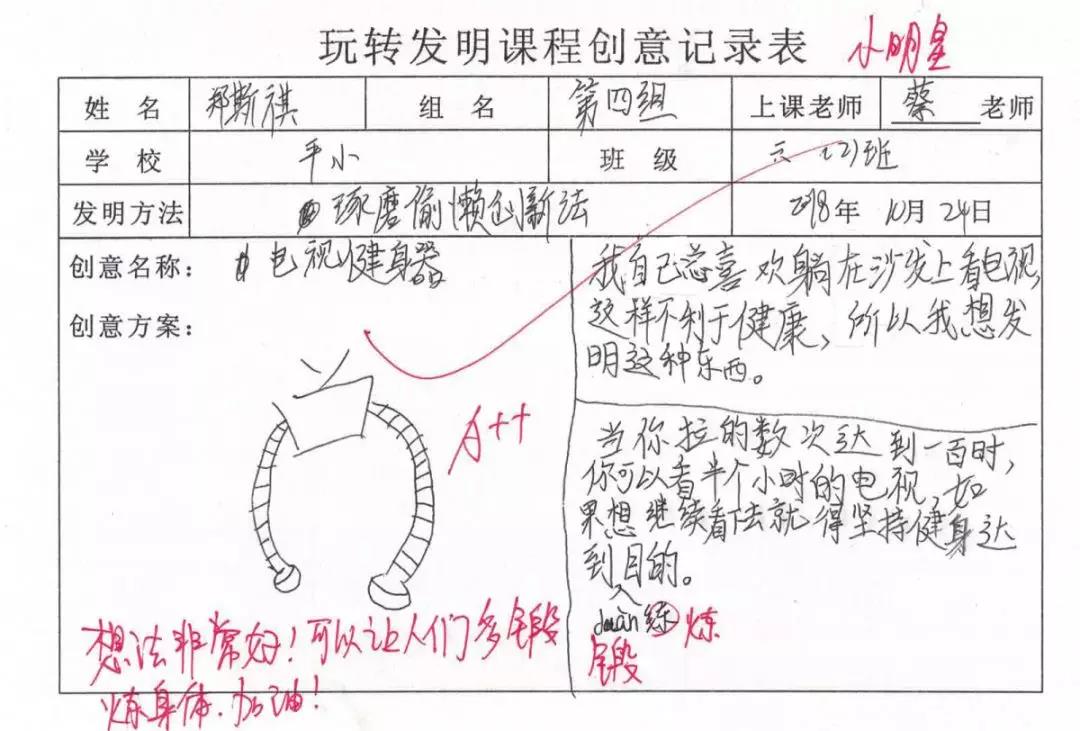 玩转发明课程创意记录表 小明星
姓 名 郑斯祺 组 名 第四组 上课老师 蔡 老师
学 校 平小 班 级 六（2）班
发明方法 琢磨偷懒创新法 2018年 10月 24日
创意名称： 电视健身器
创意方案：
A++
想法非常好！可以让人们多锻
炼身体.加油！
我自己总喜欢躺在沙发上看电视,
这样不利于健康，所以我想发
明这种东西。
当你拉的数次达到一百时，
你可以看半个小时的电视，如
果想继续看下去就得坚持健身达
到目的。
duàn 练 炼
锻